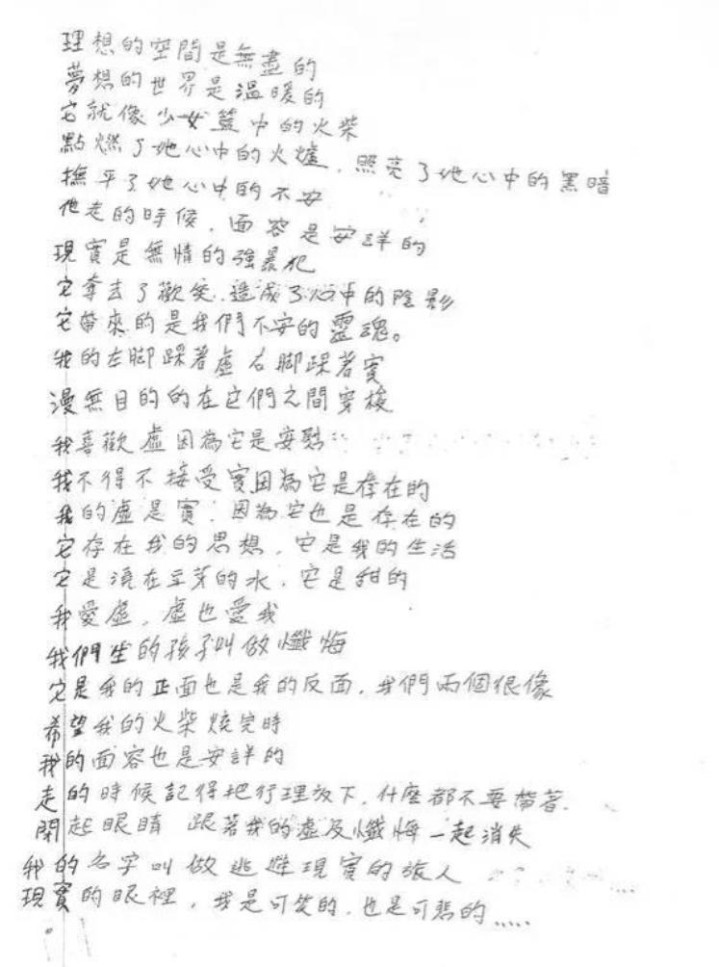 理想的空間是無盡的
夢想的世界是溫暖的
它就像少女籃中的火柴
點燃了她心中的火爐，照亮了她心中的黑暗
撫平了她心中的不安
他走的時候，面容是安詳的
現實是無情的強暴犯
它奪去了歡笑，造成了心中的陰影
它帶來的是我們不安的靈魂。
我的左腳踩著虛 右腳踩著實
漫無目的的在它們之間穿梭
我喜歡虛因為它是安慰
我不得不接受實因為它是存在的
我的虛是實，因為它也是存在的
它存在我的思想，它是我的生活
它是澆在豆芽的水，它是甜的
我愛虛，虛也愛我
我們生的孩子叫做懺悔
它是我的正面也是我的反面，我們兩個很像
希望我的火柴燒完時
我的面容也是安詳的
走的時候記得把行理放下，什麼都不要帶著．
閉起眼睛 跟著我的虛及懺悔一起消失
我的名字叫做逃避現實的旅人
現實的眼裡，我是可笑的，也是可悲的.....